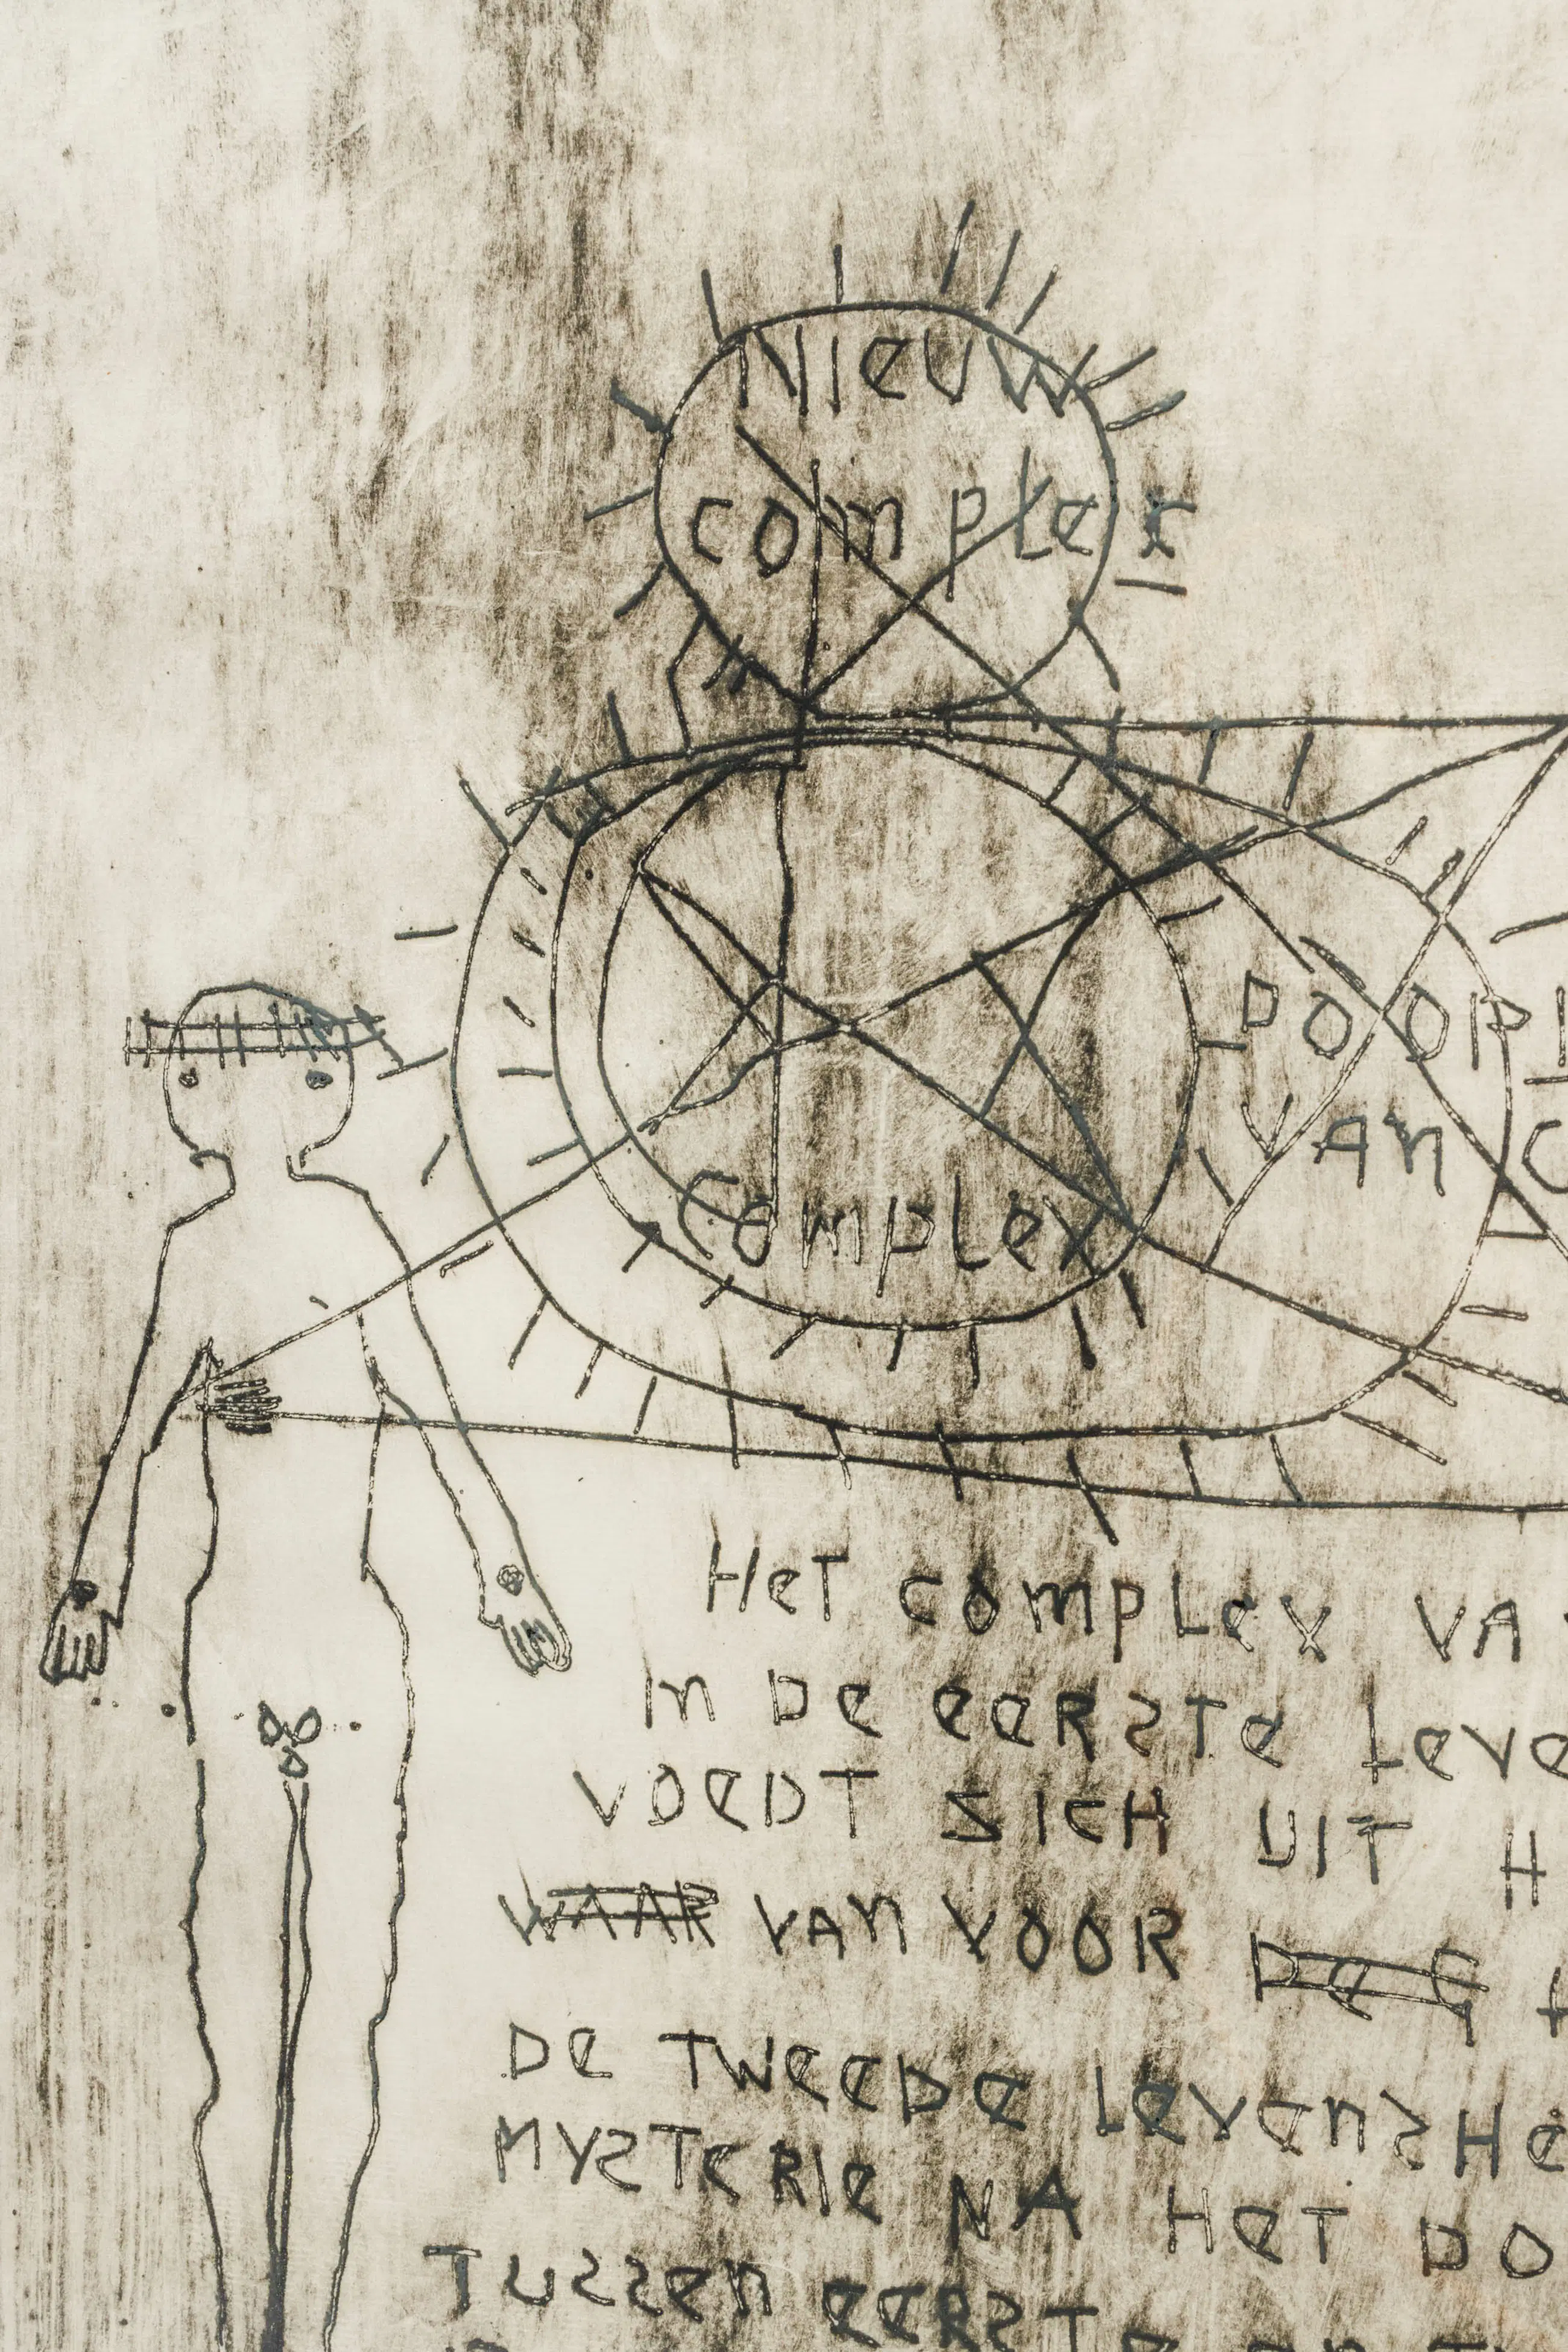 Nieuw
complex
DOOR
VAN
complex
HeT complex VA
In De eeRSTe Leve
VOeDT ZICH UIT H
WAAR VAN VOOR De G
De TWeeDe LevenSHe
MYSTeRIe NA HeT DO
TUSSen eeRST